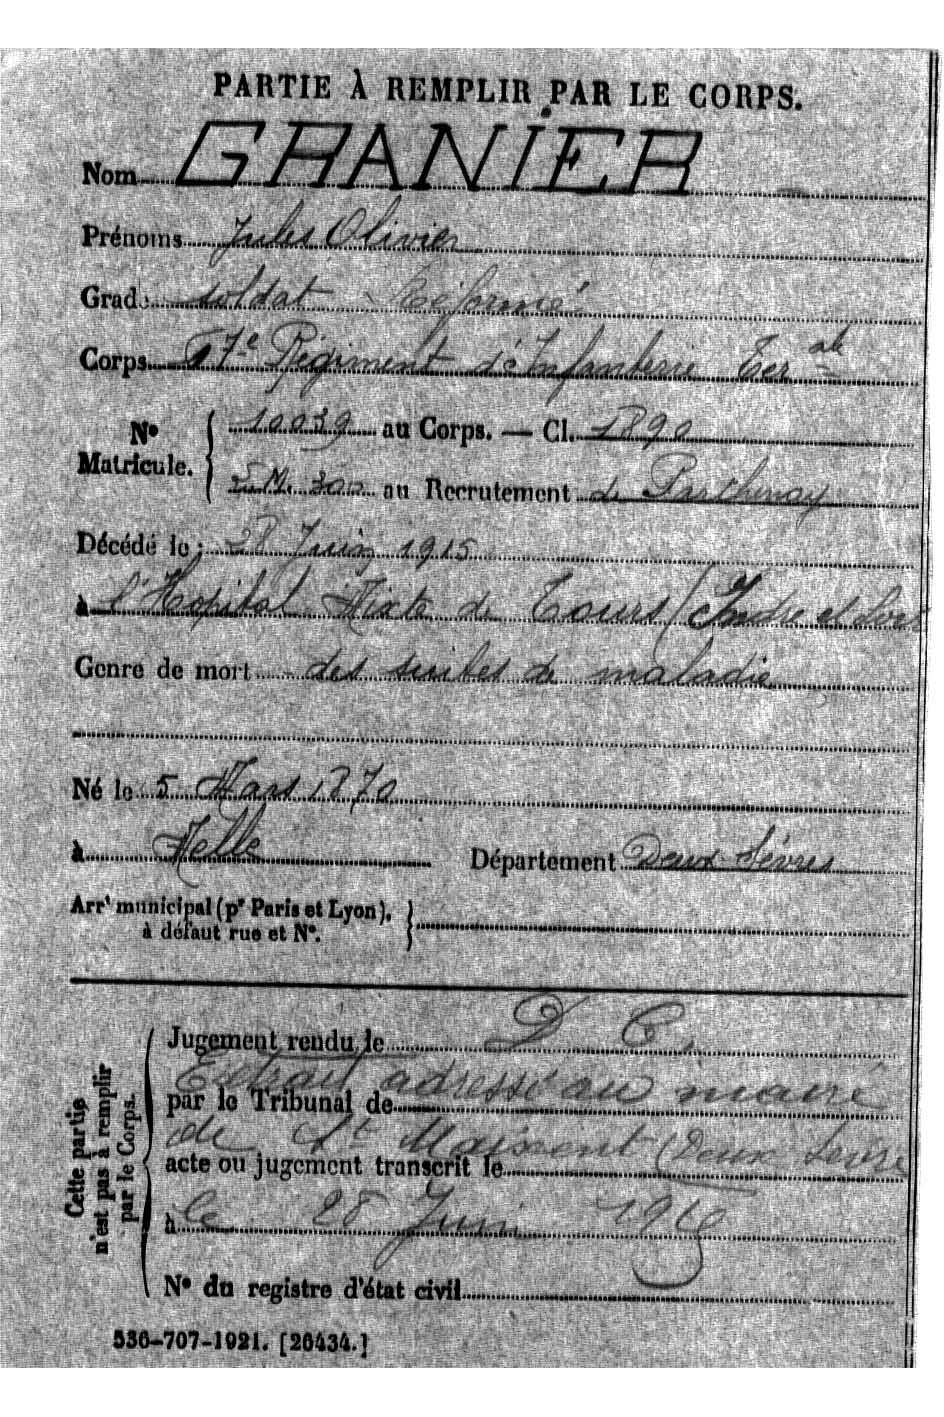 PARTIE À REMPLIR PAR LE CORPS.
Nom GRANIER
Prénoms Jules Olivier
Grade soldat Réformé
Corps 67e Régiment d'Infanterie Ter ale
No Matricule. { 10039 au Corps. — Cl. 1890
300 au Recrutement de Parthenay
Décédé le : 28 Juin 1915
à l'Hopital Mixte de Tours (Indre et Loire
Genre de mort des suites de maladie
Né le 5 Mars 1870
à Melle Département Deux-Sèvres
Arrt municipal (pr Paris et Lyon),
à défaut rue et No.
Cette partie
n'est pas à remplir
par le Corps.
Jugement rendu le D C.
Extrait adressé au maire
par le Tribunal de
de St Maixent (Deux Sèvre
acte ou jugement transcrit le
à le 28 Juin 1915
No du registre d'état civil
536-707-1921. [26434.]